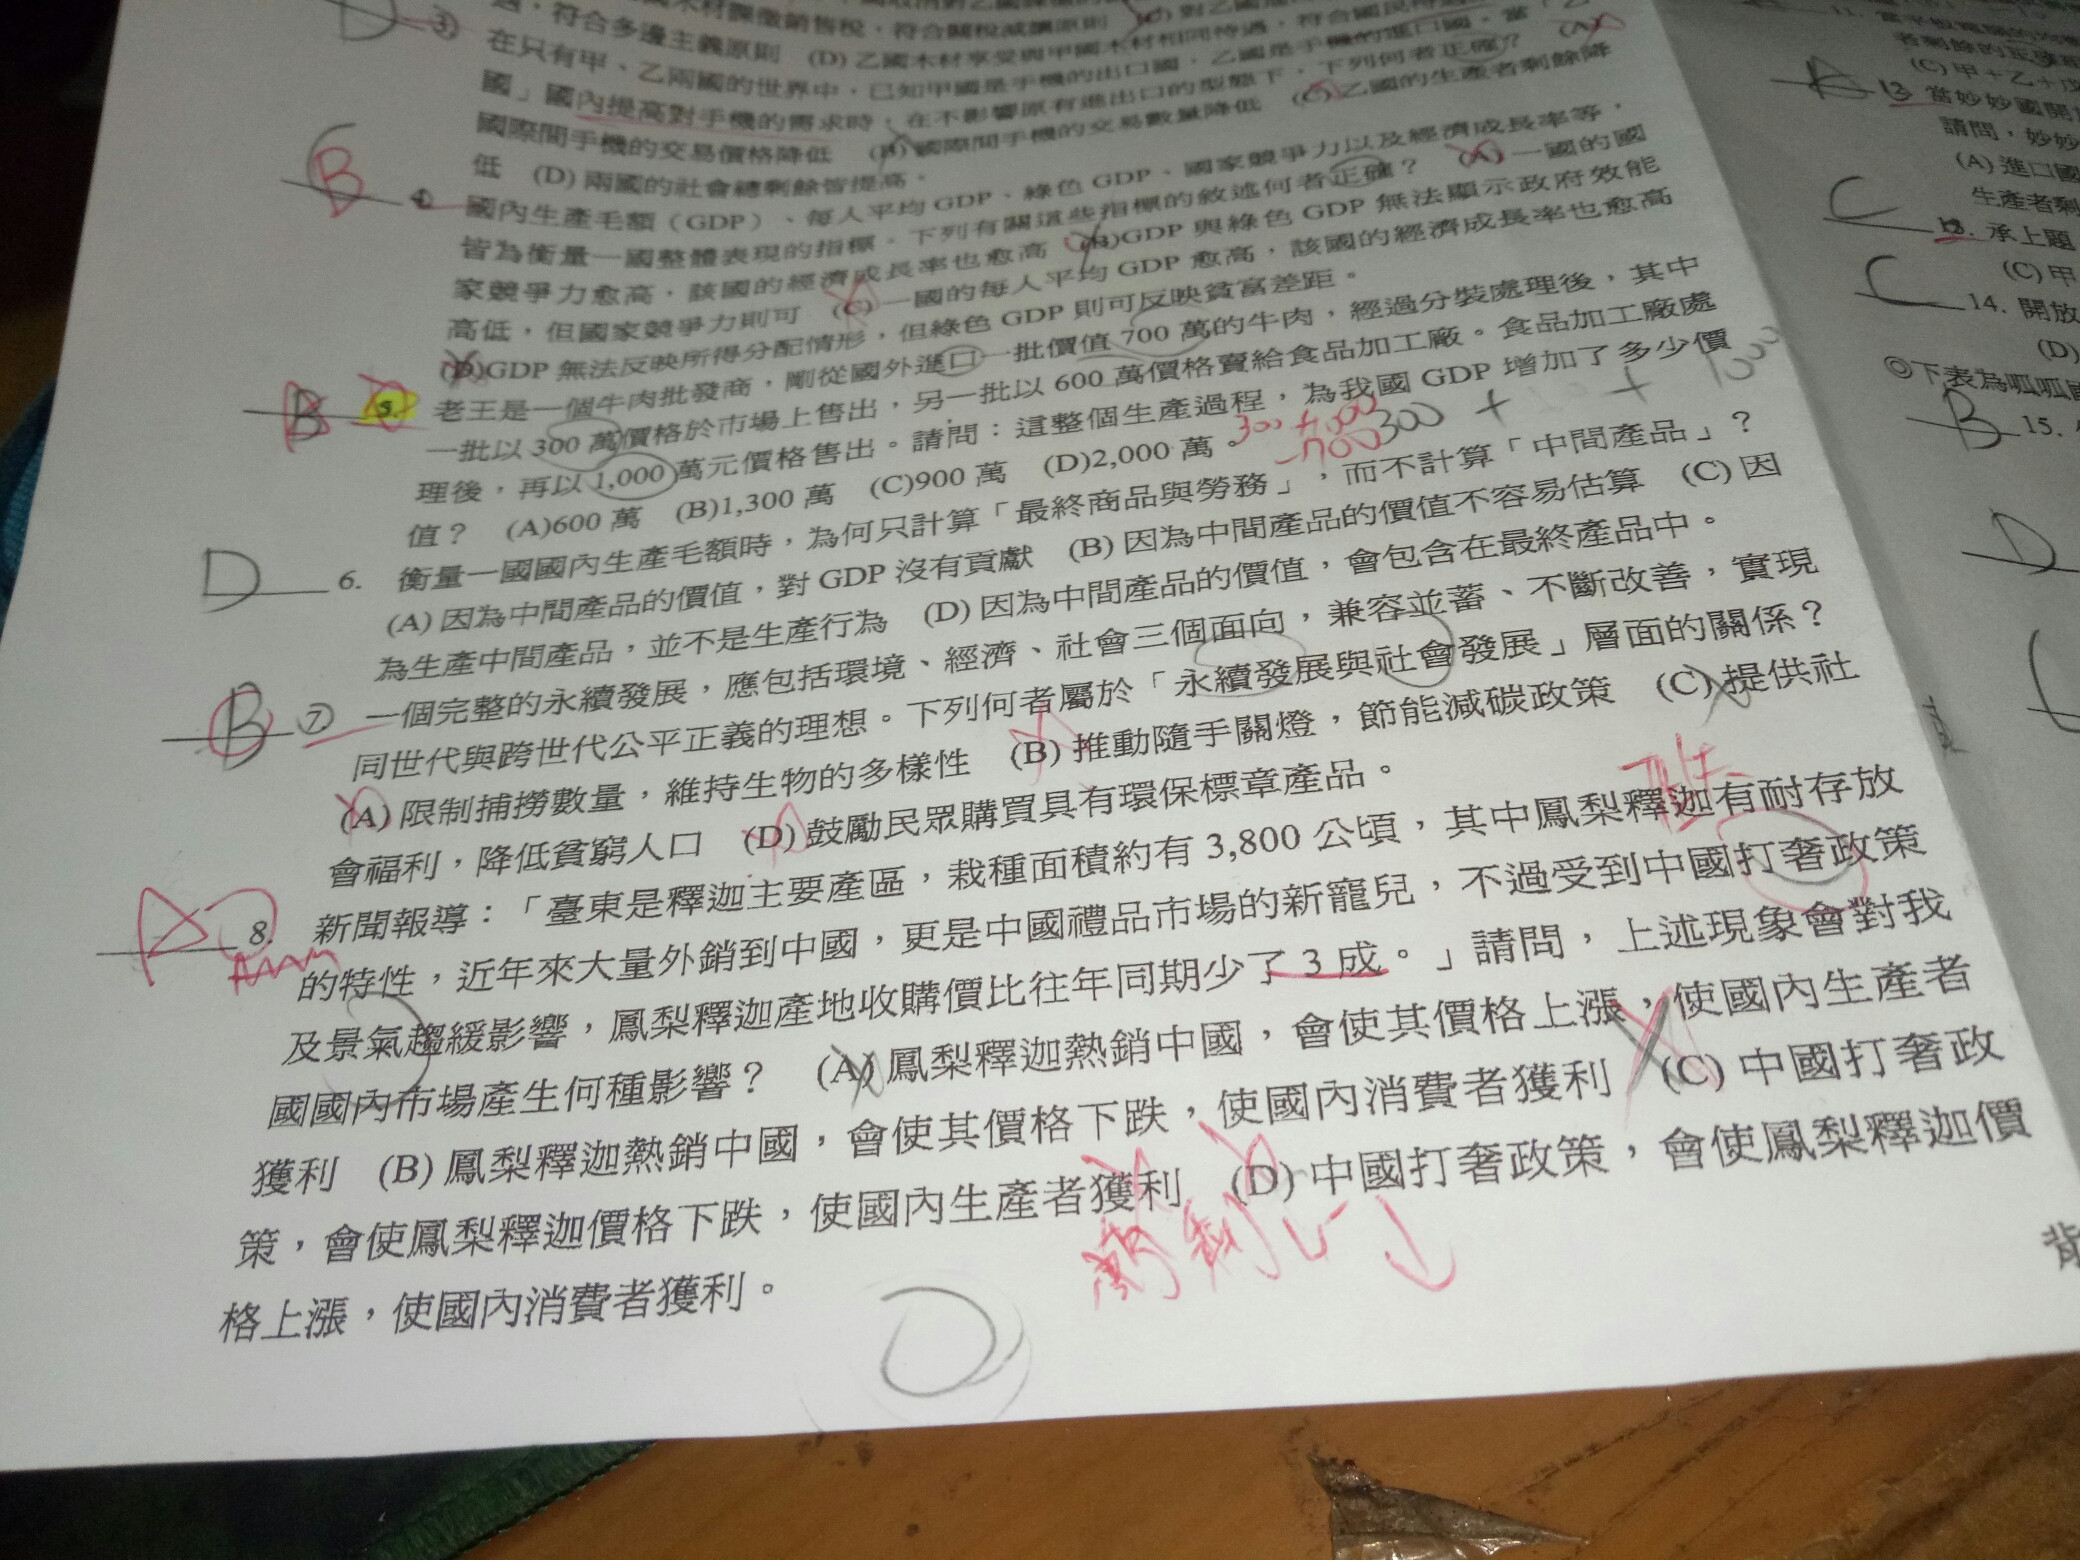 符合多邊主義原則 (D) 乙國木材享受與甲國木材相同待遇，符合國民待遇
D ③ 在只有甲、乙兩國的世界中，已知甲國是手機的出口國，乙國是手機的進口國。當「乙
國」國內提高對手機的需求時，在不影響原有進出口的型態下，下列何者正確？ (A)
國際間手機的交易價格降低 (B) 國際間手機的交易數量降低 (C) 乙國的生產者剩餘降
低 (D) 兩國的社會總剩餘皆提高。
B 4. 國內生產毛額（GDP）、每人平均 GDP、綠色 GDP、國家競爭力以及經濟成長率等，
皆為衡量一國整體表現的指標。下列有關這些指標的敘述何者正確？ (A) 一國的國
家競爭力愈高，該國的經濟成長率也愈高 (B)GDP 與綠色 GDP 無法顯示政府效能
高低，但國家競爭力則可 (C) 一國的每人平均 GDP 愈高，該國的經濟成長率也愈高
(D)GDP 無法反映所得分配情形，但綠色 GDP 則可反映貧富差距。
B 5. 老王是一個牛肉批發商，剛從國外進口一批價值 700 萬的牛肉，經過分裝處理後，其中
一批以 300 萬價格於市場上售出，另一批以 600 萬價格賣給食品加工廠。食品加工廠處
理後，再以 1,000 萬元價格售出。請問：這整個生產過程，為我國 GDP 增加了多少價
值？ (A)600 萬 (B)1,300 萬 (C)900 萬 (D)2,000 萬。
D 6. 衡量一國國內生產毛額時，為何只計算「最終商品與勞務」，而不計算「中間產品」？
(A) 因為中間產品的價值，對 GDP 沒有貢獻 (B) 因為中間產品的價值不容易估算 (C) 因
為生產中間產品，並不是生產行為 (D) 因為中間產品的價值，會包含在最終產品中。
B ⑦ 一個完整的永續發展，應包括環境、經濟、社會三個面向，兼容並蓄、不斷改善，實現
同世代與跨世代公平正義的理想。下列何者屬於「永續發展與社會發展」層面的關係？
(A) 限制捕撈數量，維持生物的多樣性 (B) 推動隨手關燈，節能減碳政策 (C) 提供社
會福利，降低貧窮人口 (D) 鼓勵民眾購買具有環保標章產品。
8. 新聞報導：「臺東是釋迦主要產區，栽種面積約有 3,800 公頃，其中鳳梨釋迦有耐存放
的特性，近年來大量外銷到中國，更是中國禮品市場的新寵兒，不過受到中國打奢政策
及景氣趨緩影響，鳳梨釋迦產地收購價比往年同期少了 3 成。」請問，上述現象會對我
國國內市場產生何種影響？ (A) 鳳梨釋迦熱銷中國，會使其價格上漲，使國內生產者
獲利 (B) 鳳梨釋迦熱銷中國，會使其價格下跌，使國內消費者獲利 (C) 中國打奢政
策，會使鳳梨釋迦價格下跌，使國內生產者獲利 (D) 中國打奢政策，會使鳳梨釋迦價
格上漲，使國內消費者獲利。
D
背
13. 當妙妙國開
請問，妙妙
(A) 進口國
生產者剩
C 13. 承上題
(C) 甲
C 14. 開放
(D)
◎下表為呱呱國
B 15.
D